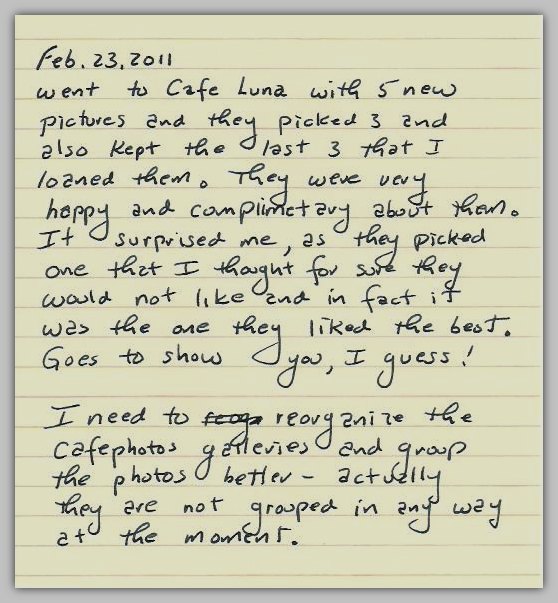 Feb. 23, 2011
went to Cafe Luna with 5 new
pictures and they picked 3 and
also kept the last 3 that I
loaned them. They were very
happy and complimetary about them.
It surprised me, as they picked
one that I thought for sure they
would not like and in fact it
was the one they liked the best.
Goes to show you, I guess!
I need to reorganize the
cafephotos galleries and group
the photos better - actually
they are not grouped in any way
at the moment.